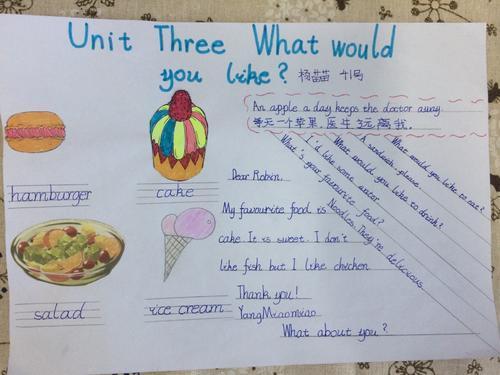 Unit Three What would
you like? 杨苗苗 41号
An apple a day keeps the doctor away.
每天一个苹果,医生远离我。
What would you like to eat?
A sandwich, please.
What would you like to drink?
I'd like some water.
What's your favourite food?
Noodles. They're delicious.
hamburger
cake
salad
ice cream
Dear Robin,
My favourite food is
cake. It is sweet. I don't
like fish but I like chicken.
Thank you!
YangMiaomiao
What about you?